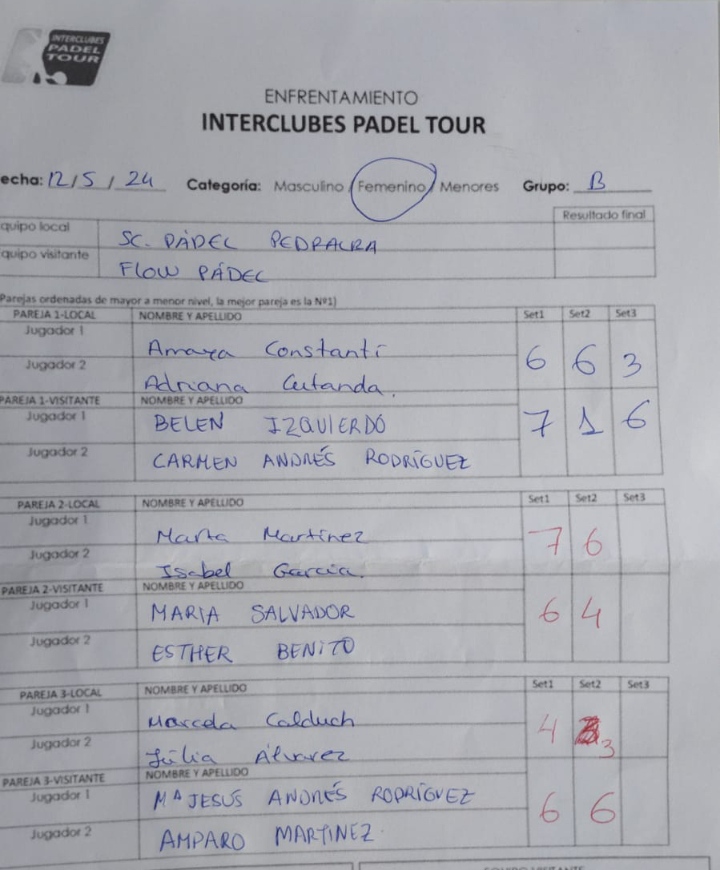 INTERCLUBES
PADEL
TOUR
ENFRENTAMIENTO
INTERCLUBES PADEL TOUR
echa: 12/5/24 Categoría: Masculino / Femenino / Menores Grupo: B
Resultado final
quipo local SC. PÁDEL PEDRALBA
quipo visitante FLOW PÁDEL
Parejas ordenadas de mayor a menor nivel, la mejor pareja es la Nº1)
PAREJA 1-LOCAL NOMBRE Y APELLIDO Set1 Set2 Set3
Jugador 1 Amaya Constantí
6 6 3
Jugador 2 Adriana Cutanda.
PAREJA 1-VISITANTE NOMBRE Y APELLIDO
Jugador 1 BELEN IZQUIERDO
7 1 6
Jugador 2 CARMEN ANDRÉS RODRÍGUEZ
PAREJA 2-LOCAL NOMBRE Y APELLIDO Set1 Set2 Set3
Jugador 1 Marta Martínez
7 6
Jugador 2 Isabel García.
PAREJA 2-VISITANTE NOMBRE Y APELLIDO
Jugador 1 MARIA SALVADOR
6 4
Jugador 2 ESTHER BENITO
PAREJA 3-LOCAL NOMBRE Y APELLIDO Set1 Set2 Set3
Jugador 1 Marcela Calduch
4 3
Jugador 2 Júlia Álvarez
PAREJA 3-VISITANTE NOMBRE Y APELLIDO
Jugador 1 Mª JESÚS ANDRÉS RODRÍGUEZ
6 6
Jugador 2 AMPARO MARTINEZ